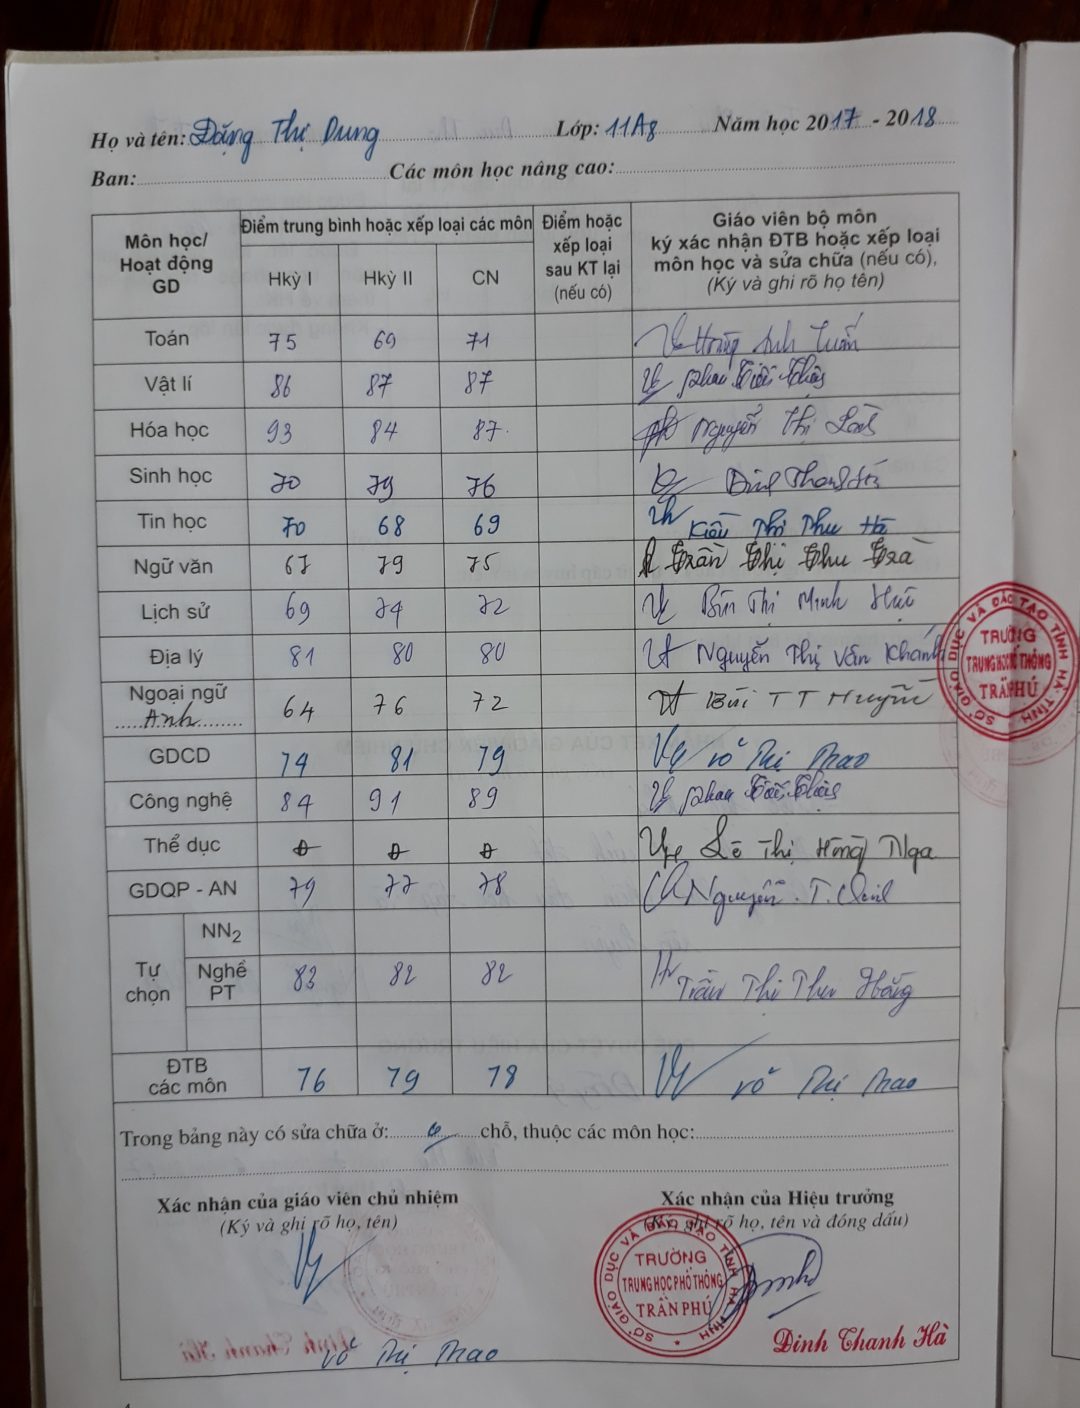 Họ và tên: Đặng Thị Dung Lớp: 11A8 Năm học 2017 - 2018
Ban: Các môn học nâng cao:
Môn học/ Hoạt động GD
Điểm trung bình hoặc xếp loại các môn
Hkỳ I Hkỳ II CN
Điểm hoặc xếp loại sau KT lại (nếu có)
Giáo viên bộ môn
ký xác nhận ĐTB hoặc xếp loại
môn học và sửa chữa (nếu có),
(Ký và ghi rõ họ tên)
Toán 75 69 71 Hoàng Anh Tuấn
Vật lí 86 87 87 Phan
Hóa học 93 84 87 Nguyễn Thị
Sinh học 70 79 76 Đinh
Tin học 70 68 69 Kiều Thị Thu Hà
Ngữ văn 67 79 75 Trần Thị Thu Trà
Lịch sử 69 74 72 Thị Minh
Địa lý 81 80 80 Nguyễn Thị Vân Khánh
Ngoại ngữ Anh 64 76 72 Bùi T T Huyền
GDCD 74 81 79 Võ Thị Thao
Công nghệ 84 91 89 Phan
Thể dục Đ Đ Đ Lê Thị Hồng Nga
GDQP - AN 79 77 78 Nguyễn T.
Tự chọn
NN2
Nghề PT 83 82 82 Trần Thị Thu Hằng
ĐTB các môn 76 79 78 Võ Thị Thao
Trong bảng này có sửa chữa ở: 0 chỗ, thuộc các môn học:
Xác nhận của giáo viên chủ nhiệm
(Ký và ghi rõ họ, tên)
Võ Thị Thao
Xác nhận của Hiệu trưởng
(Ký, ghi rõ họ, tên và đóng dấu)
SỞ GIÁO DỤC VÀ ĐÀO TẠO TỈNH HÀ TĨNH
TRƯỜNG
TRUNG HỌC PHỔ THÔNG
TRẦN PHÚ
Đinh Thanh Hà
SỞ GIÁO DỤC VÀ ĐÀO TẠO TỈNH HÀ TĨNH
TRƯỜNG
TRUNG HỌC PHỔ THÔNG
TRẦN PHÚ